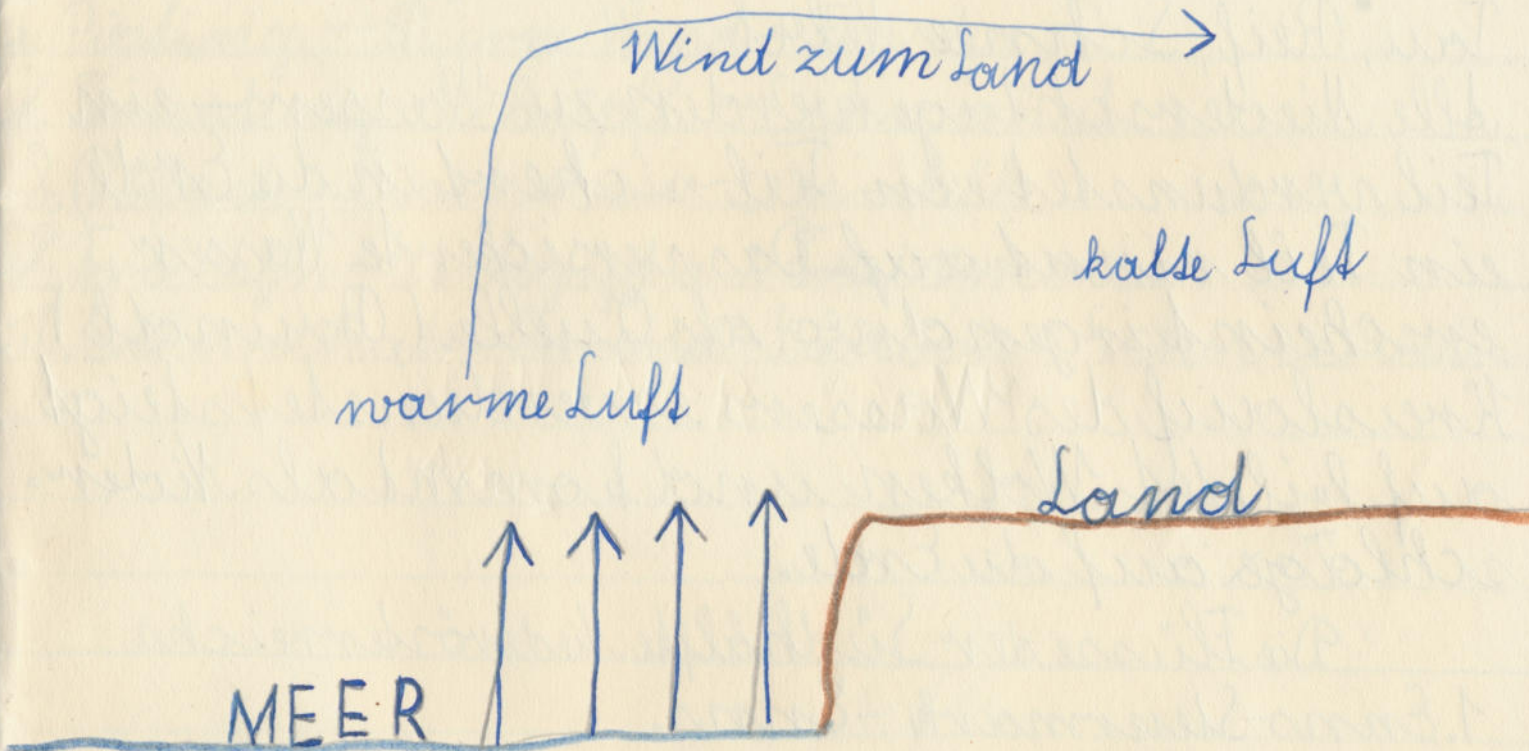 Wind zum Land
kalte Luft
warme Luft
Land
MEER